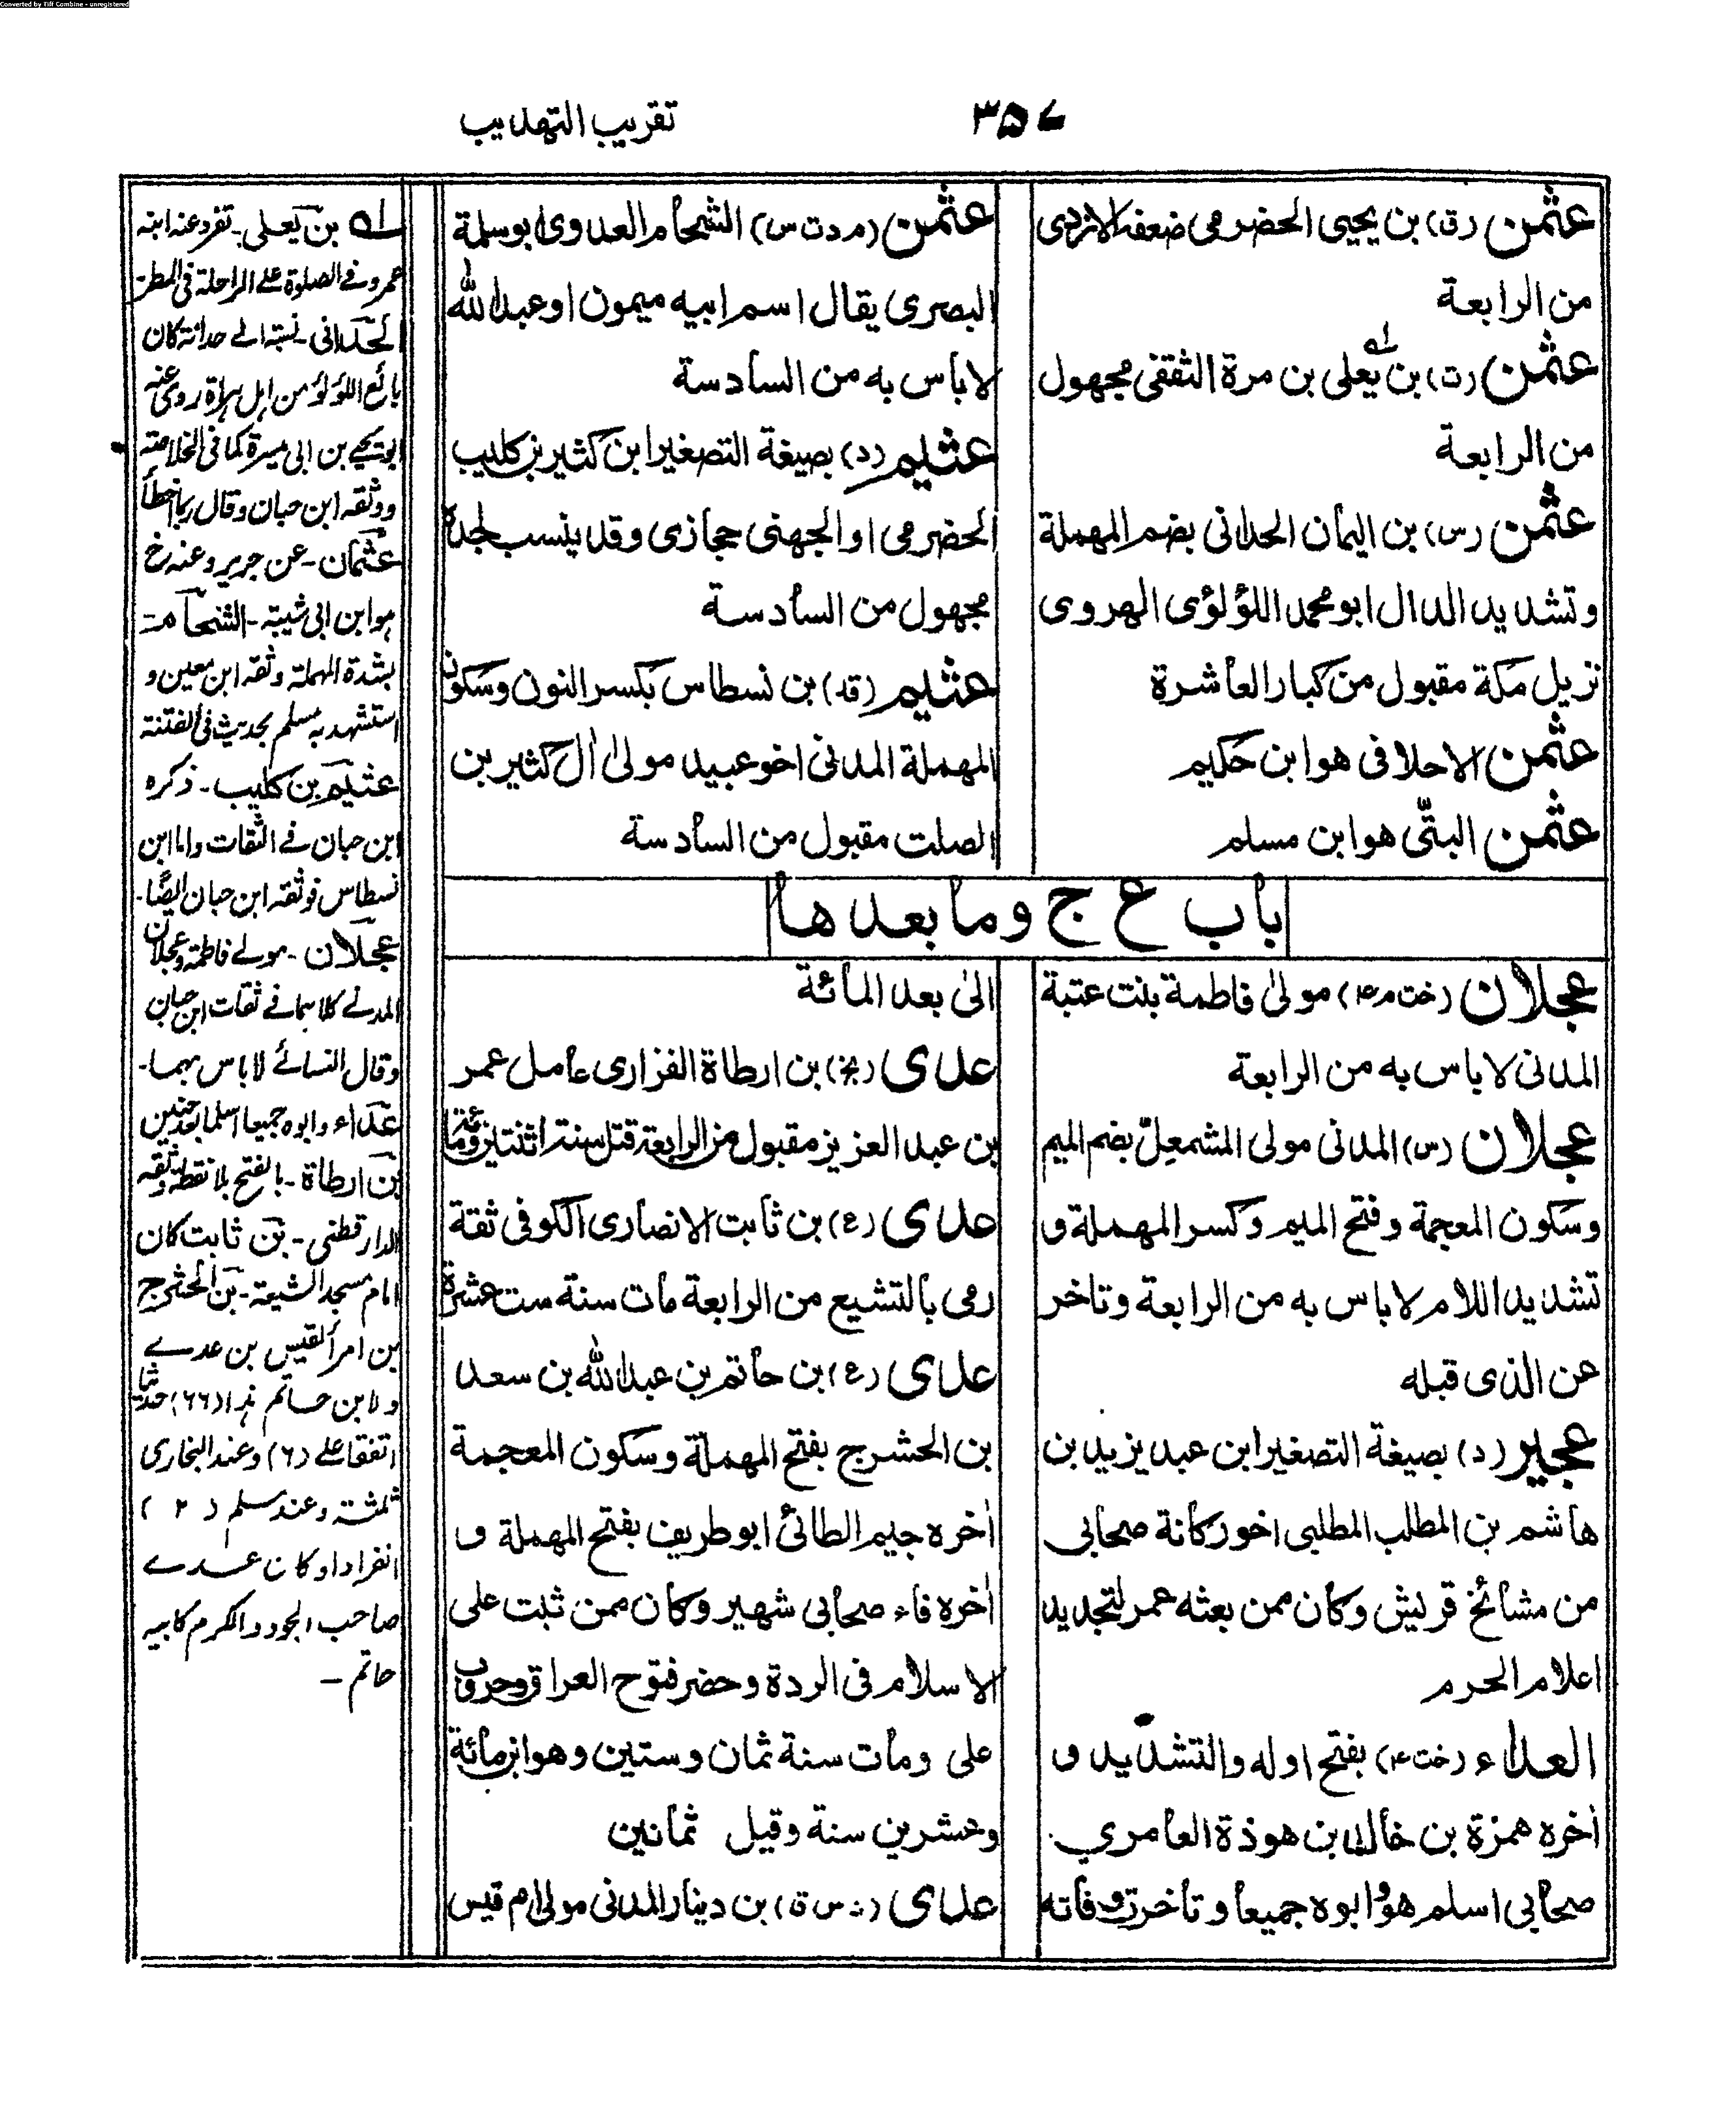 Converted by Tiff Combine - unregistered
۳۵۷
تقریب التهذیب
عثمن (ق) بن يحيى الحضرمی ضعفه الازدی
من الرابعة
عثمن (ت) بن يعلى بن مرة الثقفی مجهول
من الرابعة
عثمن (س) بن الیمان الحدانی بضم المهملة
وتشدید الدال ابو محمد اللؤلؤی الهروی
نزیل مكة مقبول من كبار العاشرة
عثمن الاحلافی هو ابن حكیم
عثمن البتّی هو ابن مسلم
عثمن (م د ت س) الشحام العدوی ابو سلمة
البصری یقال اسم ابیه میمون او عبد الله
لا باس به من السادسة
عثیم (د) بصیغة التصغیر ابن كثیر بن كلیب
الحضرمی او الجهنی حجازی وقد ینسب لجده
مجهول من السادسة
عثیم (قد) بن نسطاس بكسر النون وسكون
المهملة المدنی اخو عبید مولیٰ اٰل كثیر بن
الصلت مقبول من السادسة
باب ع ج وما بعدها
عجلان (خت م ۴) مولیٰ فاطمة بنت عتبة
المدنی لا باس به من الرابعة
عجلان (س) المدنی مولی المشمعلّ بضم المیم
وسكون المعجمة وفتح المیم وكسر المهملة و
تشدید اللام لا باس به من الرابعة وتاخر
عن الذی قبله
عجیر (د) بصیغة التصغیر ابن عبد یزید بن
هاشم بن المطلب المطلبی اخو ركانة صحابی
من مشائخ قریش وكان ممن بعثه عمر لتجدید
اعلام الحرم
العداء (خت ۴) بفتح اوله والتشدید و
اٰخره همزة بن خالد بن هوذة العامری
صحابی اسلم هو وابوه جمیعا وتأخرت وفاته
الیٰ بعد المائة
عدی (بخ) بن ارطاة الفزاری عامل عمر
بن عبد العزیز مقبول من الرابعة قتل سنة اثنتین ومائة
عدی (ع) بن ثابت الانصاری الكوفی ثقة
رمی بالتشیع من الرابعة مات سنة ست عشرة
عدی (ع) بن حاتم بن عبد الله بن سعد
بن الحشرج بفتح المهملة وسكون المعجمة
اٰخره جیم الطائی ابو طریف بفتح المهملة و
اٰخره فاء صحابی شهیر وكان ممن ثبت علی
الاسلام فی الردة وحضر فتوح العراق وحروب
علی ومات سنة ثمان وستین وهو ابن مائة
وعشرین سنة وقیل ثمانین
عدی (س ق) بن دینار المدنی مولی ام قیس
له بن یعلی ـ تفرد عنه ابنه
عمرو فی الصلوة علی الراحلة فی المطر ـ
الحدانی ـ نسبة الی حدانة كان
بائع اللؤلؤ من اهل هراة روی عنه
ابو یحیے بن ابی میسرة كما فی الخلاصة
ووثقه ابن حبان وقال ربما اخطأ
عثمان ـ عن جریر وعنه خ
هو ابن ابی شیبة ـ الشحام ـ
بشدة المهملة وثقه ابن معین و
استشهد به مسلم بحدیث فی الفتنة
عثیم بن كلیب ـ ذكره
ابن حبان فی الثقات واما ابن
نسطاس فوثقه ابن حبان ایضًا ـ
عجلان ـ مولے فاطمة وعجلان
المدنے كلاهما فے ثقات ابن حبان
وقال النسائے لا باس بهما ـ
عداء وابوه جمیعا اسلما بعد حنین
بن ارطاة ـ بالفتح بلا نقطة وثقه
الدارقطنی ـ بن ثابت كان
امام مسجد الشیعة ـ بن الحشرج
بن امرأ القیس بن عدے
ولابن حاتم هذا (۶۶) حدیثا
اتفقا علے (۶) وعند البخاری
ثلثة وعند مسلم (۲)
انفرادا وكان عدے
صاحب الجود والكرم كابیه
حاتم ـ